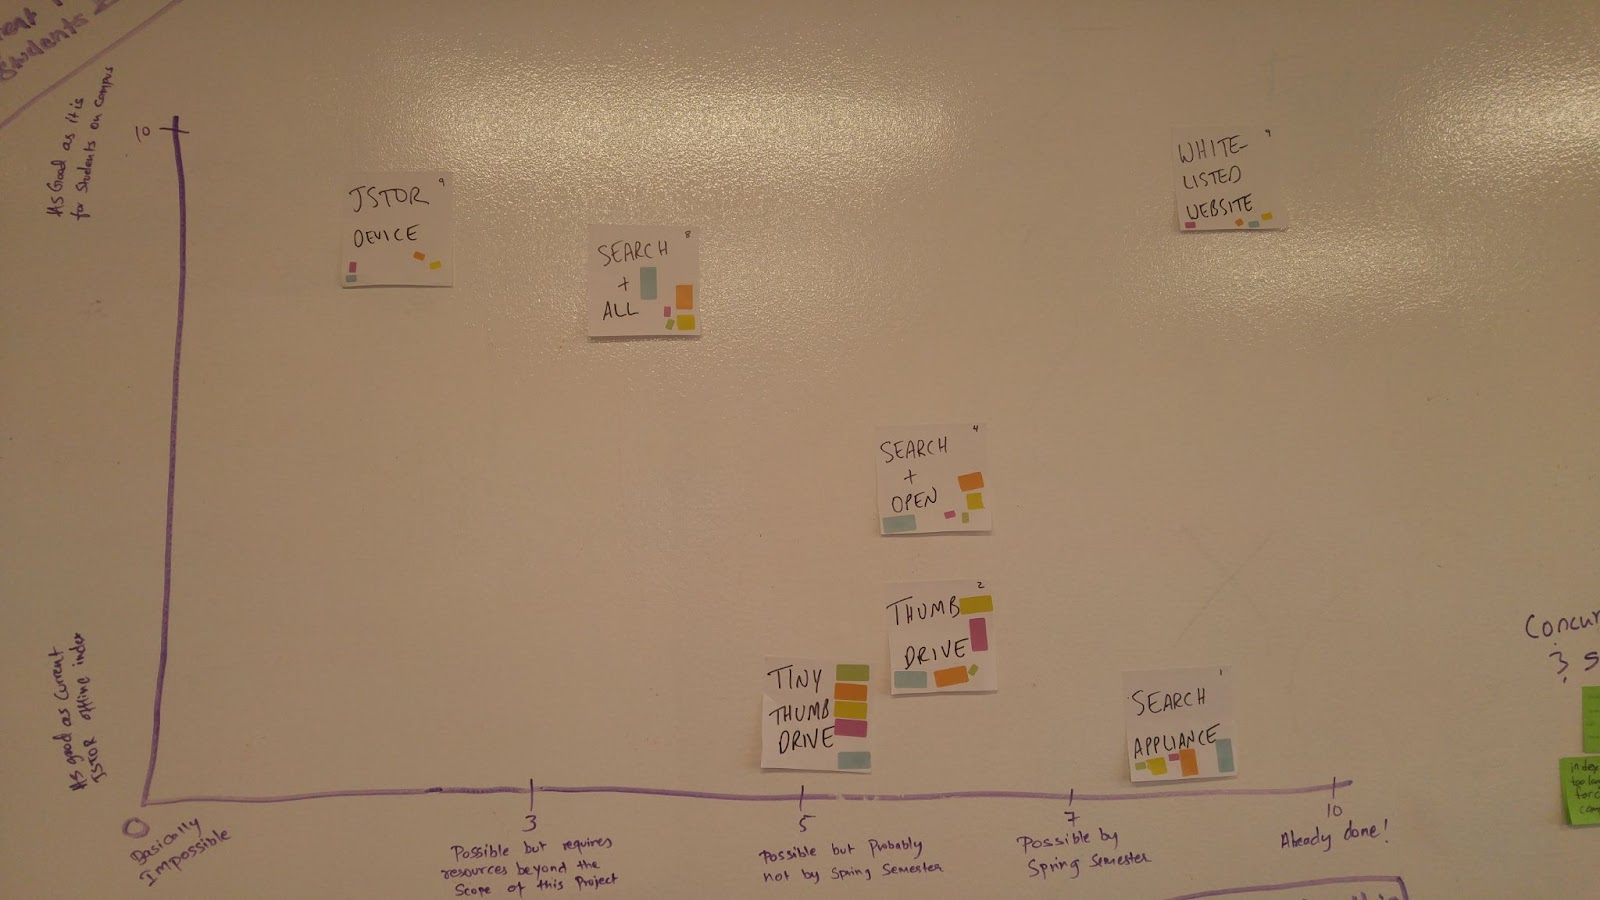 Students
As Good as it is
for students on campus
10
JSTOR 9
DEVICE
SEARCH 8
+
ALL
WHITE- 9
LISTED
WEBSITE
SEARCH 4
+
OPEN
THUMB 2
DRIVE
TINY
THUMB
DRIVE
SEARCH 1
APPLIANCE
As good as current
JSTOR offline index
0
Basically
Impossible
3
Possible but requires
resources beyond the
Scope of this Project
5
Possible but Probably
not by Spring Semester
7
Possible by
Spring Semester
10
Already done!